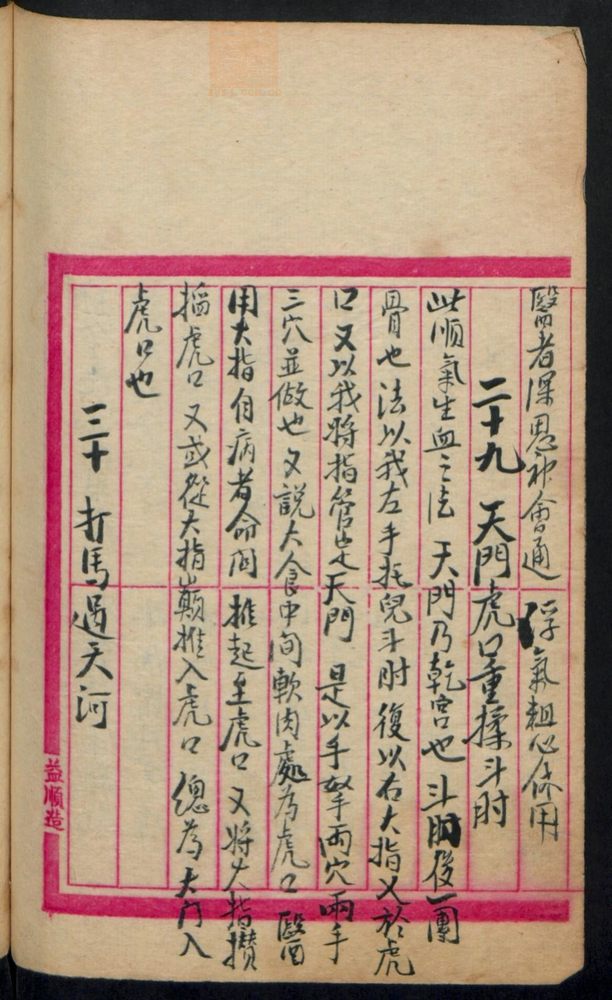 醫者深思神會通 浮氣粗心休用
二十九 天門虎口重揉斗肘
此順氣生血之法 天門乃乾宮也 斗肘後一團
骨也 法以我左手托兒斗肘 復以右大指叉於虎
口 又以我將指管定天門 是以手拏兩穴 兩手
三穴並做也 又說大食中間軟肉處為虎口 醫
用大指自病者命 推起至虎口 又將大指攢
掐虎口 又或從大指巔推入虎口 總為天門入
虎口也
三十 打馬過天河
益順造